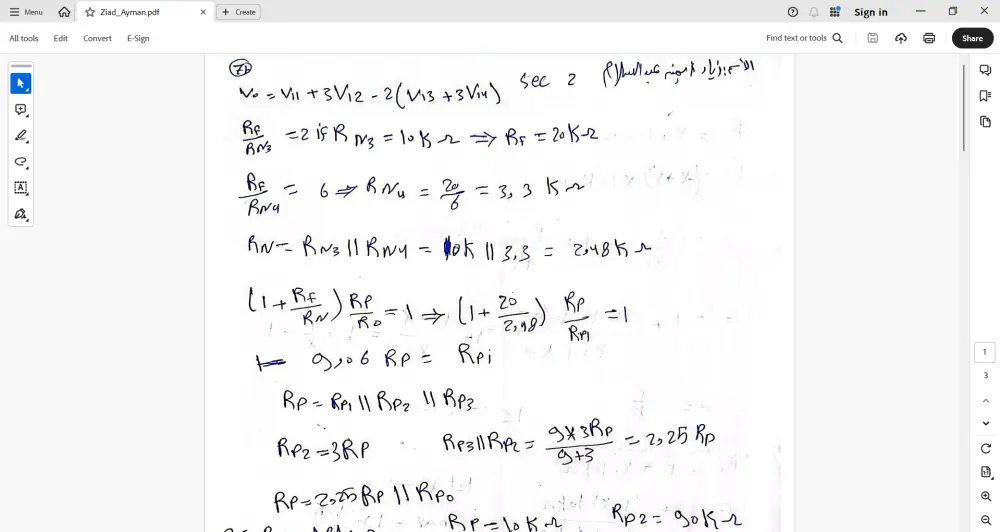 Menu
Ziad_Ayman.pdf
+ Create
Sign in
All tools Edit Convert E-Sign
Find text or tools
Share
7b
Vo = Vi1 + 3Vi2 - 2(Vi3 + 3Vi4) sec 2
RF/RN3 = 2 if RN3 = 10K Ω ⇒ RF = 20K Ω
RF/RN4 = 6 ⇒ RN4 = 20/6 = 3,3 K Ω
RN = RN3 || RN4 = 10K || 3,3 = 2,48K Ω
(1 + RF/RN) RP/R0 = 1 ⇒ (1 + 20/2,48) RP/RP1 = 1
9,06 RP = RPi
RP = RP1 || RP2 || RP3
RP2 = 3RP RP3 || RP2 = 9*3RP/9+3 = 2,25 RP
RP = 2,25RP || RP0
RP = 10K Ω RP2 = 90K Ω
1
3